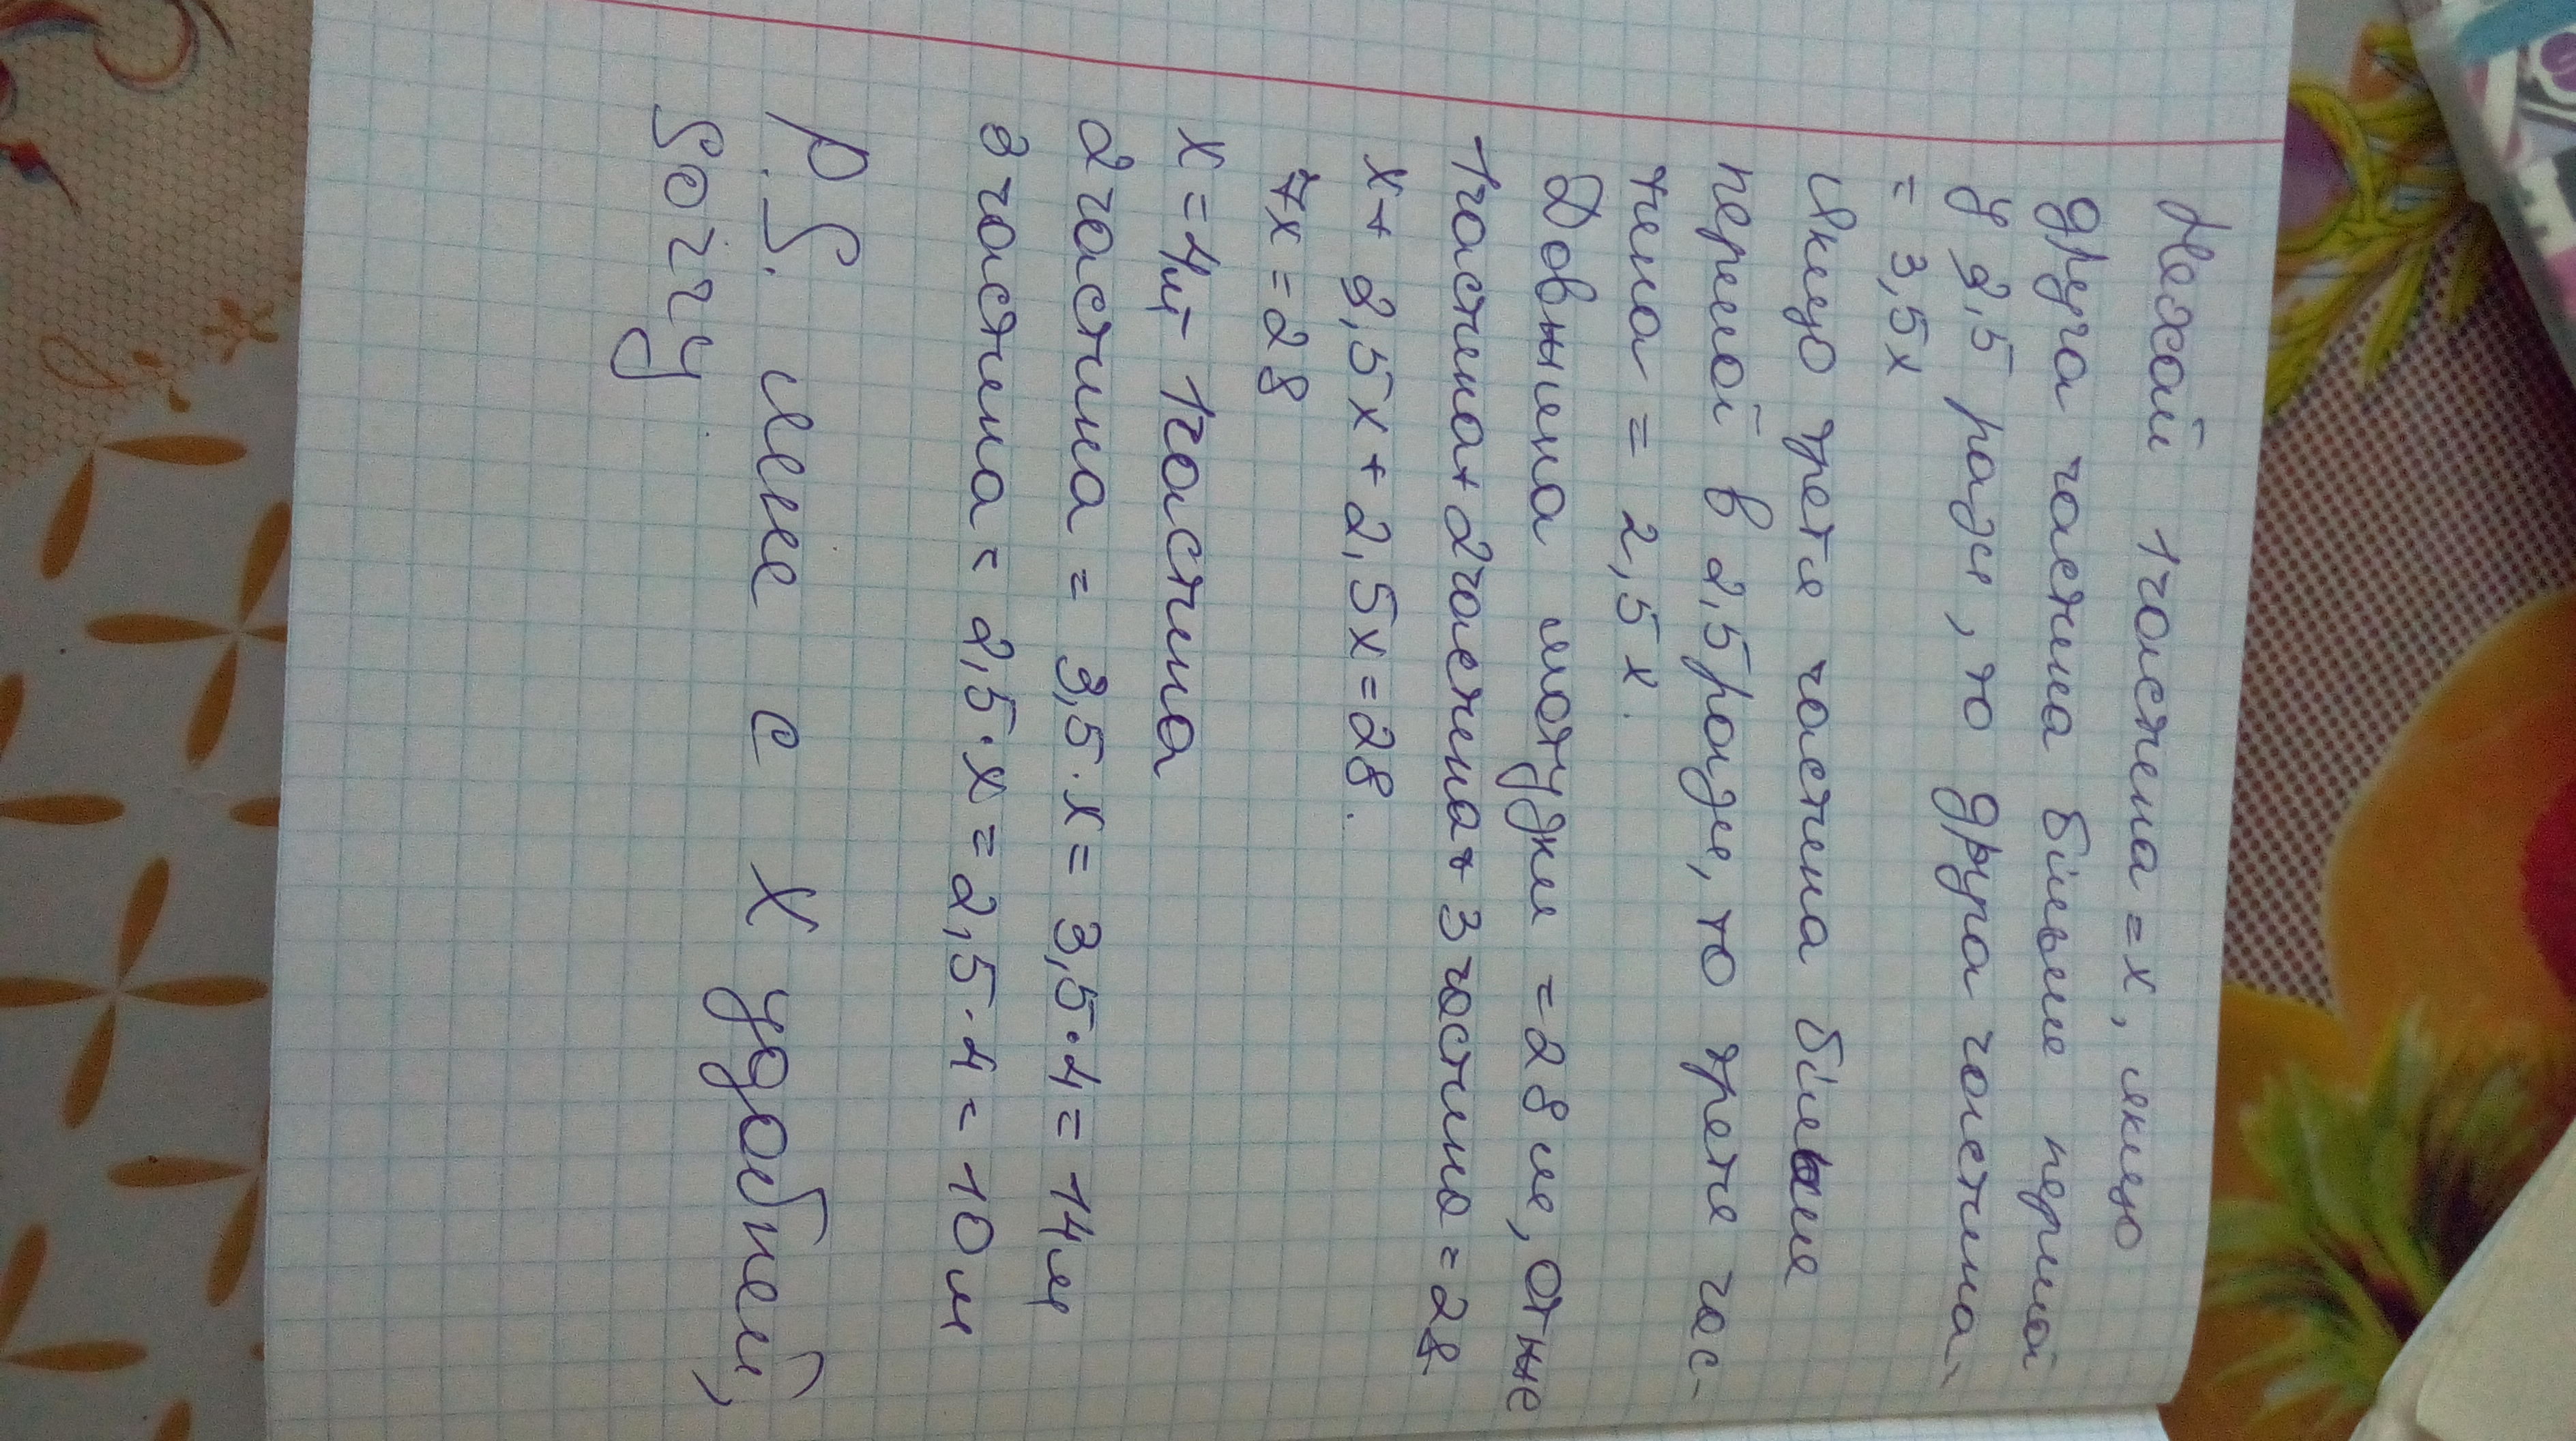 Нехай 1 частина = х, якщо
друга частина більше першої
у 3,5 рази, то друга частина =
= 3,5х
Якщо третя частина більше
першої в 2,5 рази, то третя час-
тина = 2,5 х.
Довжина мотузки = 28 м, отже
1 частина + 2 частина + 3 частина = 28
х + 3,5х + 2,5х = 28.
7х = 28
х = 4м - 1 частина
2 частина = 3,5 · х = 3,5 · 4 = 14м
3 частина = 2,5 · х = 2,5 · 4 = 10 м
P.S. мне с х удобней,
sorry